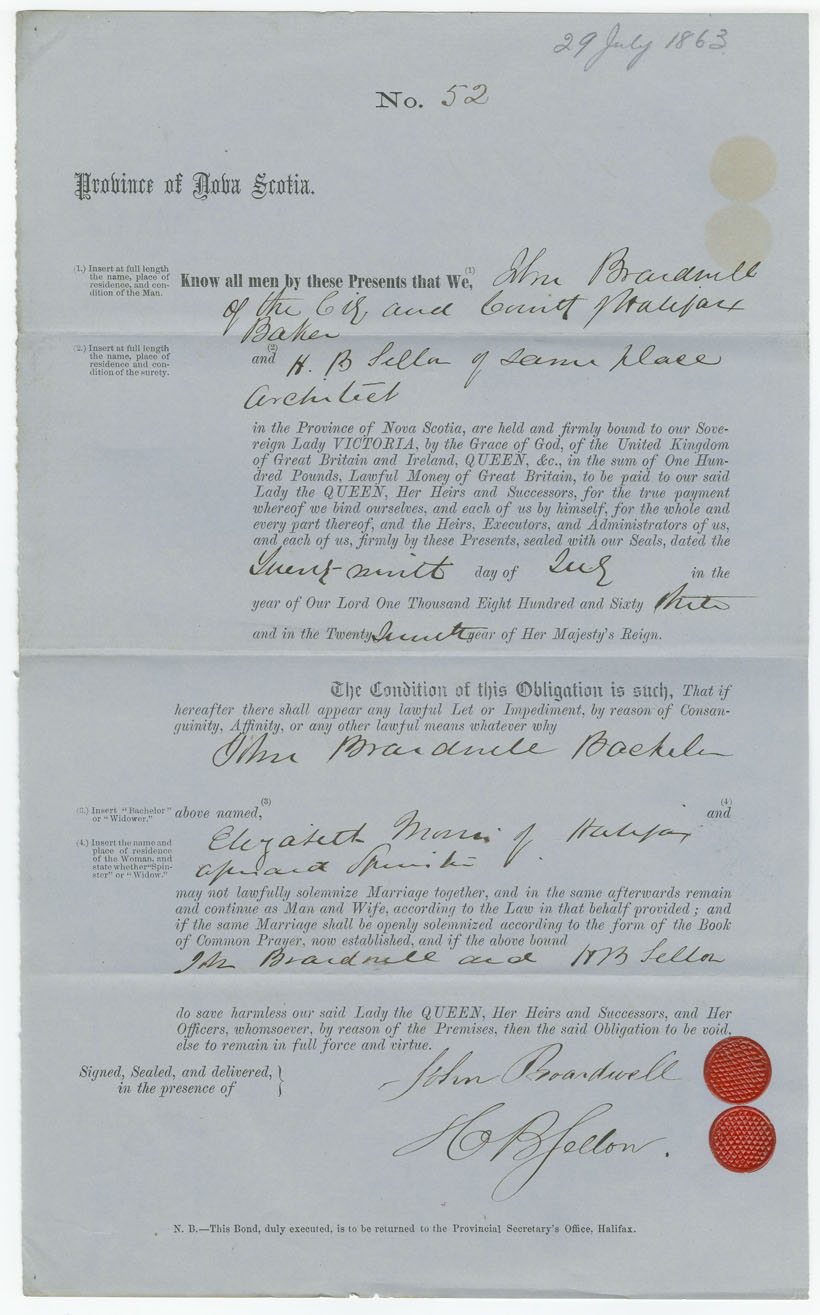 29 July 1863
No. 52
Province of Nova Scotia.
(1.) Insert at full length
the name, place of
residence, and con-
dition of the Man.
Know all men by these Presents that We, (1) John Boardwell
of the City and County of Halifax
Baker
(2.) Insert at full length
the name, place of
residence and con-
dition of the surety.
and (2) H. B Sellon of same place
Architect
in the Province of Nova Scotia, are held and firmly bound to our Sove-
reign Lady VICTORIA, by the Grace of God, of the United Kingdom
of Great Britain and Ireland, QUEEN, &c., in the sum of One Hun-
dred Pounds, Lawful Money of Great Britain, to be paid to our said
Lady the QUEEN, Her Heirs and Successors, for the true payment
whereof we bind ourselves, and each of us by himself, for the whole and
every part thereof, and the Heirs, Executors, and Administrators of us,
and each of us, firmly by these Presents, sealed with our Seals, dated the
Twenty-ninth day of July in the
year of Our Lord One Thousand Eight Hundred and Sixty three
and in the Twenty Seventh year of Her Majesty's Reign.
The Condition of this Obligation is such, That if
hereafter there shall appear any lawful Let or Impediment, by reason of Consan-
guinity, Affinity, or any other lawful means whatever why
John Boardwell Bachelor
(3.) Insert "Bachelor"
or "Widower."
above named, (3) and (4)
(4.) Insert the name and
place of residence
of the Woman, and
state whether "Spin-
ster" or "Widow."
Elizabeth Morris of Halifax
aforesaid Spinster
may not lawfully solemnize Marriage together, and in the same afterwards remain
and continue as Man and Wife, according to the Law in that behalf provided; and
if the same Marriage shall be openly solemnized according to the form of the Book
of Common Prayer, now established, and if the above bound
John Boardwell and H B Sellon
do save harmless our said Lady the QUEEN, Her Heirs and Successors, and Her
Officers, whomsoever, by reason of the Premises, then the said Obligation to be void,
else to remain in full force and virtue.
Signed, Sealed, and delivered,
in the presence of
John Boardwell
H B Sellon.
N. B.—This Bond, duly executed, is to be returned to the Provincial Secretary's Office, Halifax.